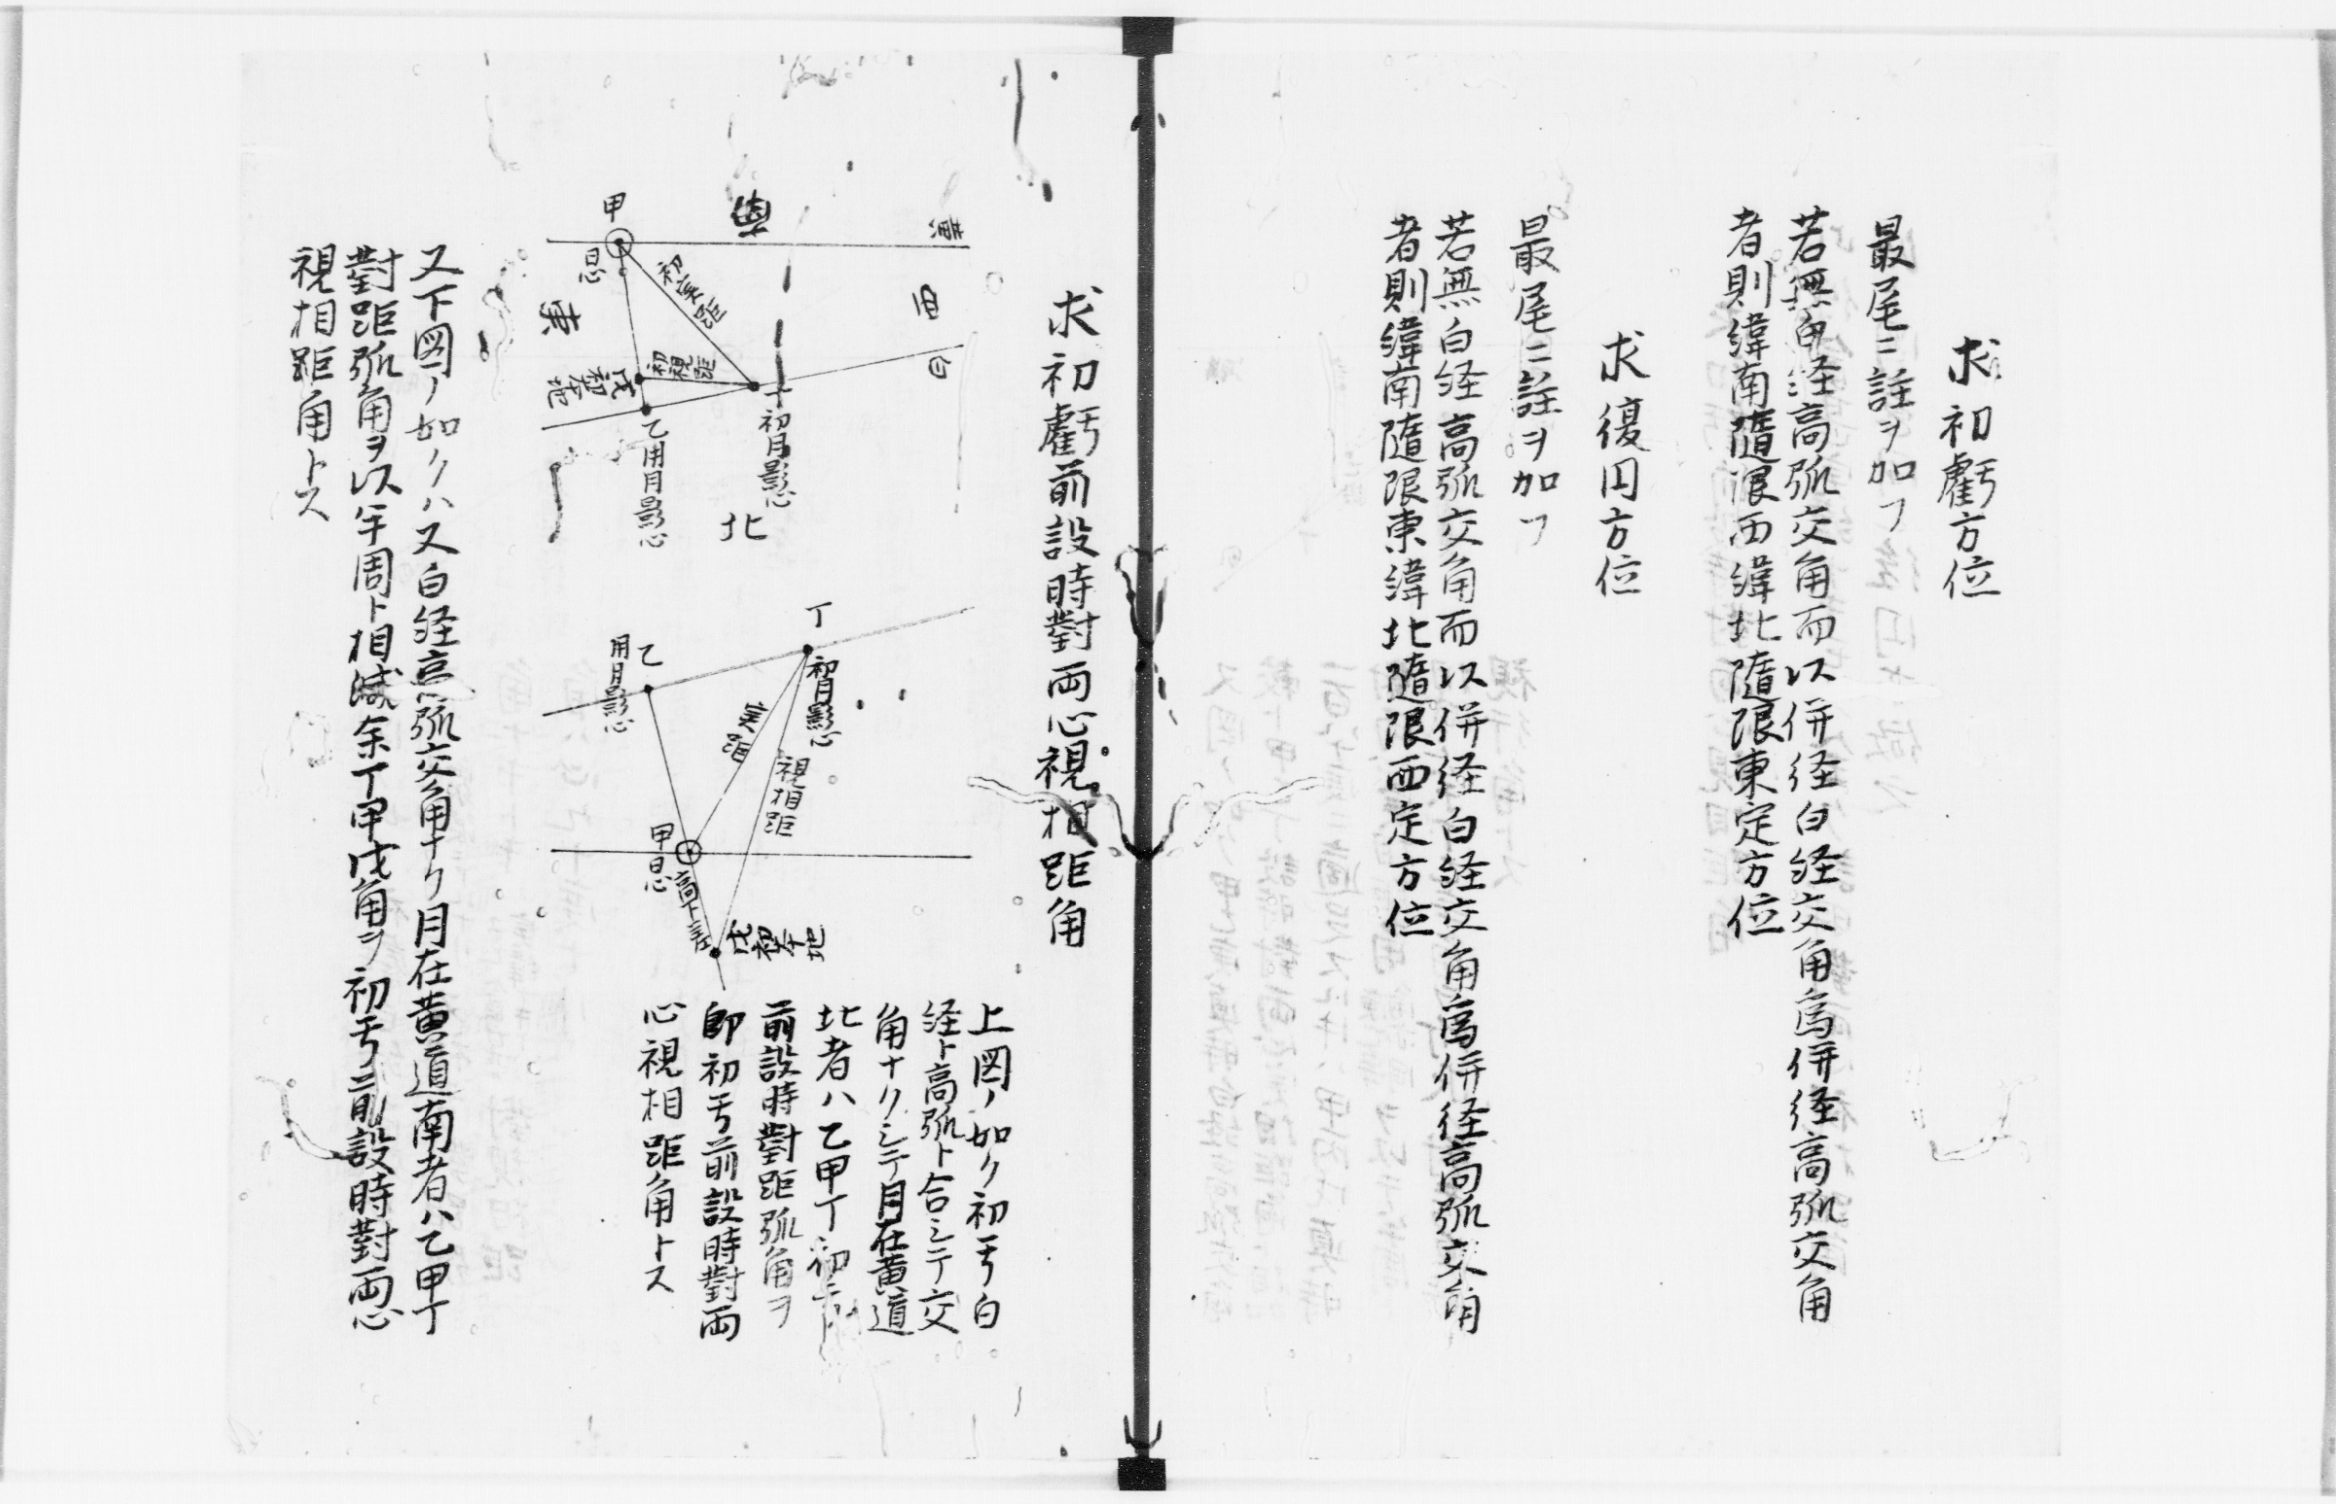 求初虧方位
最尾ニ註ヲ加フ
若無白経高弧交角而以併径白経交角為併径高弧交角
者則緯南隨限西緯北隨限東定方位
求復円方位
最尾ニ註ヲ加フ
若無白経高弧交角而以併径白経交角為併径高弧交角
者則緯南隨限東緯北隨限西定方位
求初虧前設時對両心視相距角
黄
西
白
甲
日心
東
初実距
初視距
戊
乙用月影心
丁初月影心
北
丁
初月影心
乙
用月影心
実距
視相距
甲日心
高下差
戊
上図ノ如ク初亏白
経ト高弧ト合シテ交
角ナクシテ月在黄道
北者ハ乙甲丁初亏
前設時對距弧角ヲ
即初亏前設時對両
心視相距角トス
又下図ノ如クハ又白経高弧交角ナク月在黄道南者ハ乙甲丁
對距弧角ヲ以半周ト相減余丁甲戊角ヲ初亏前設時對両心
視相距角トス